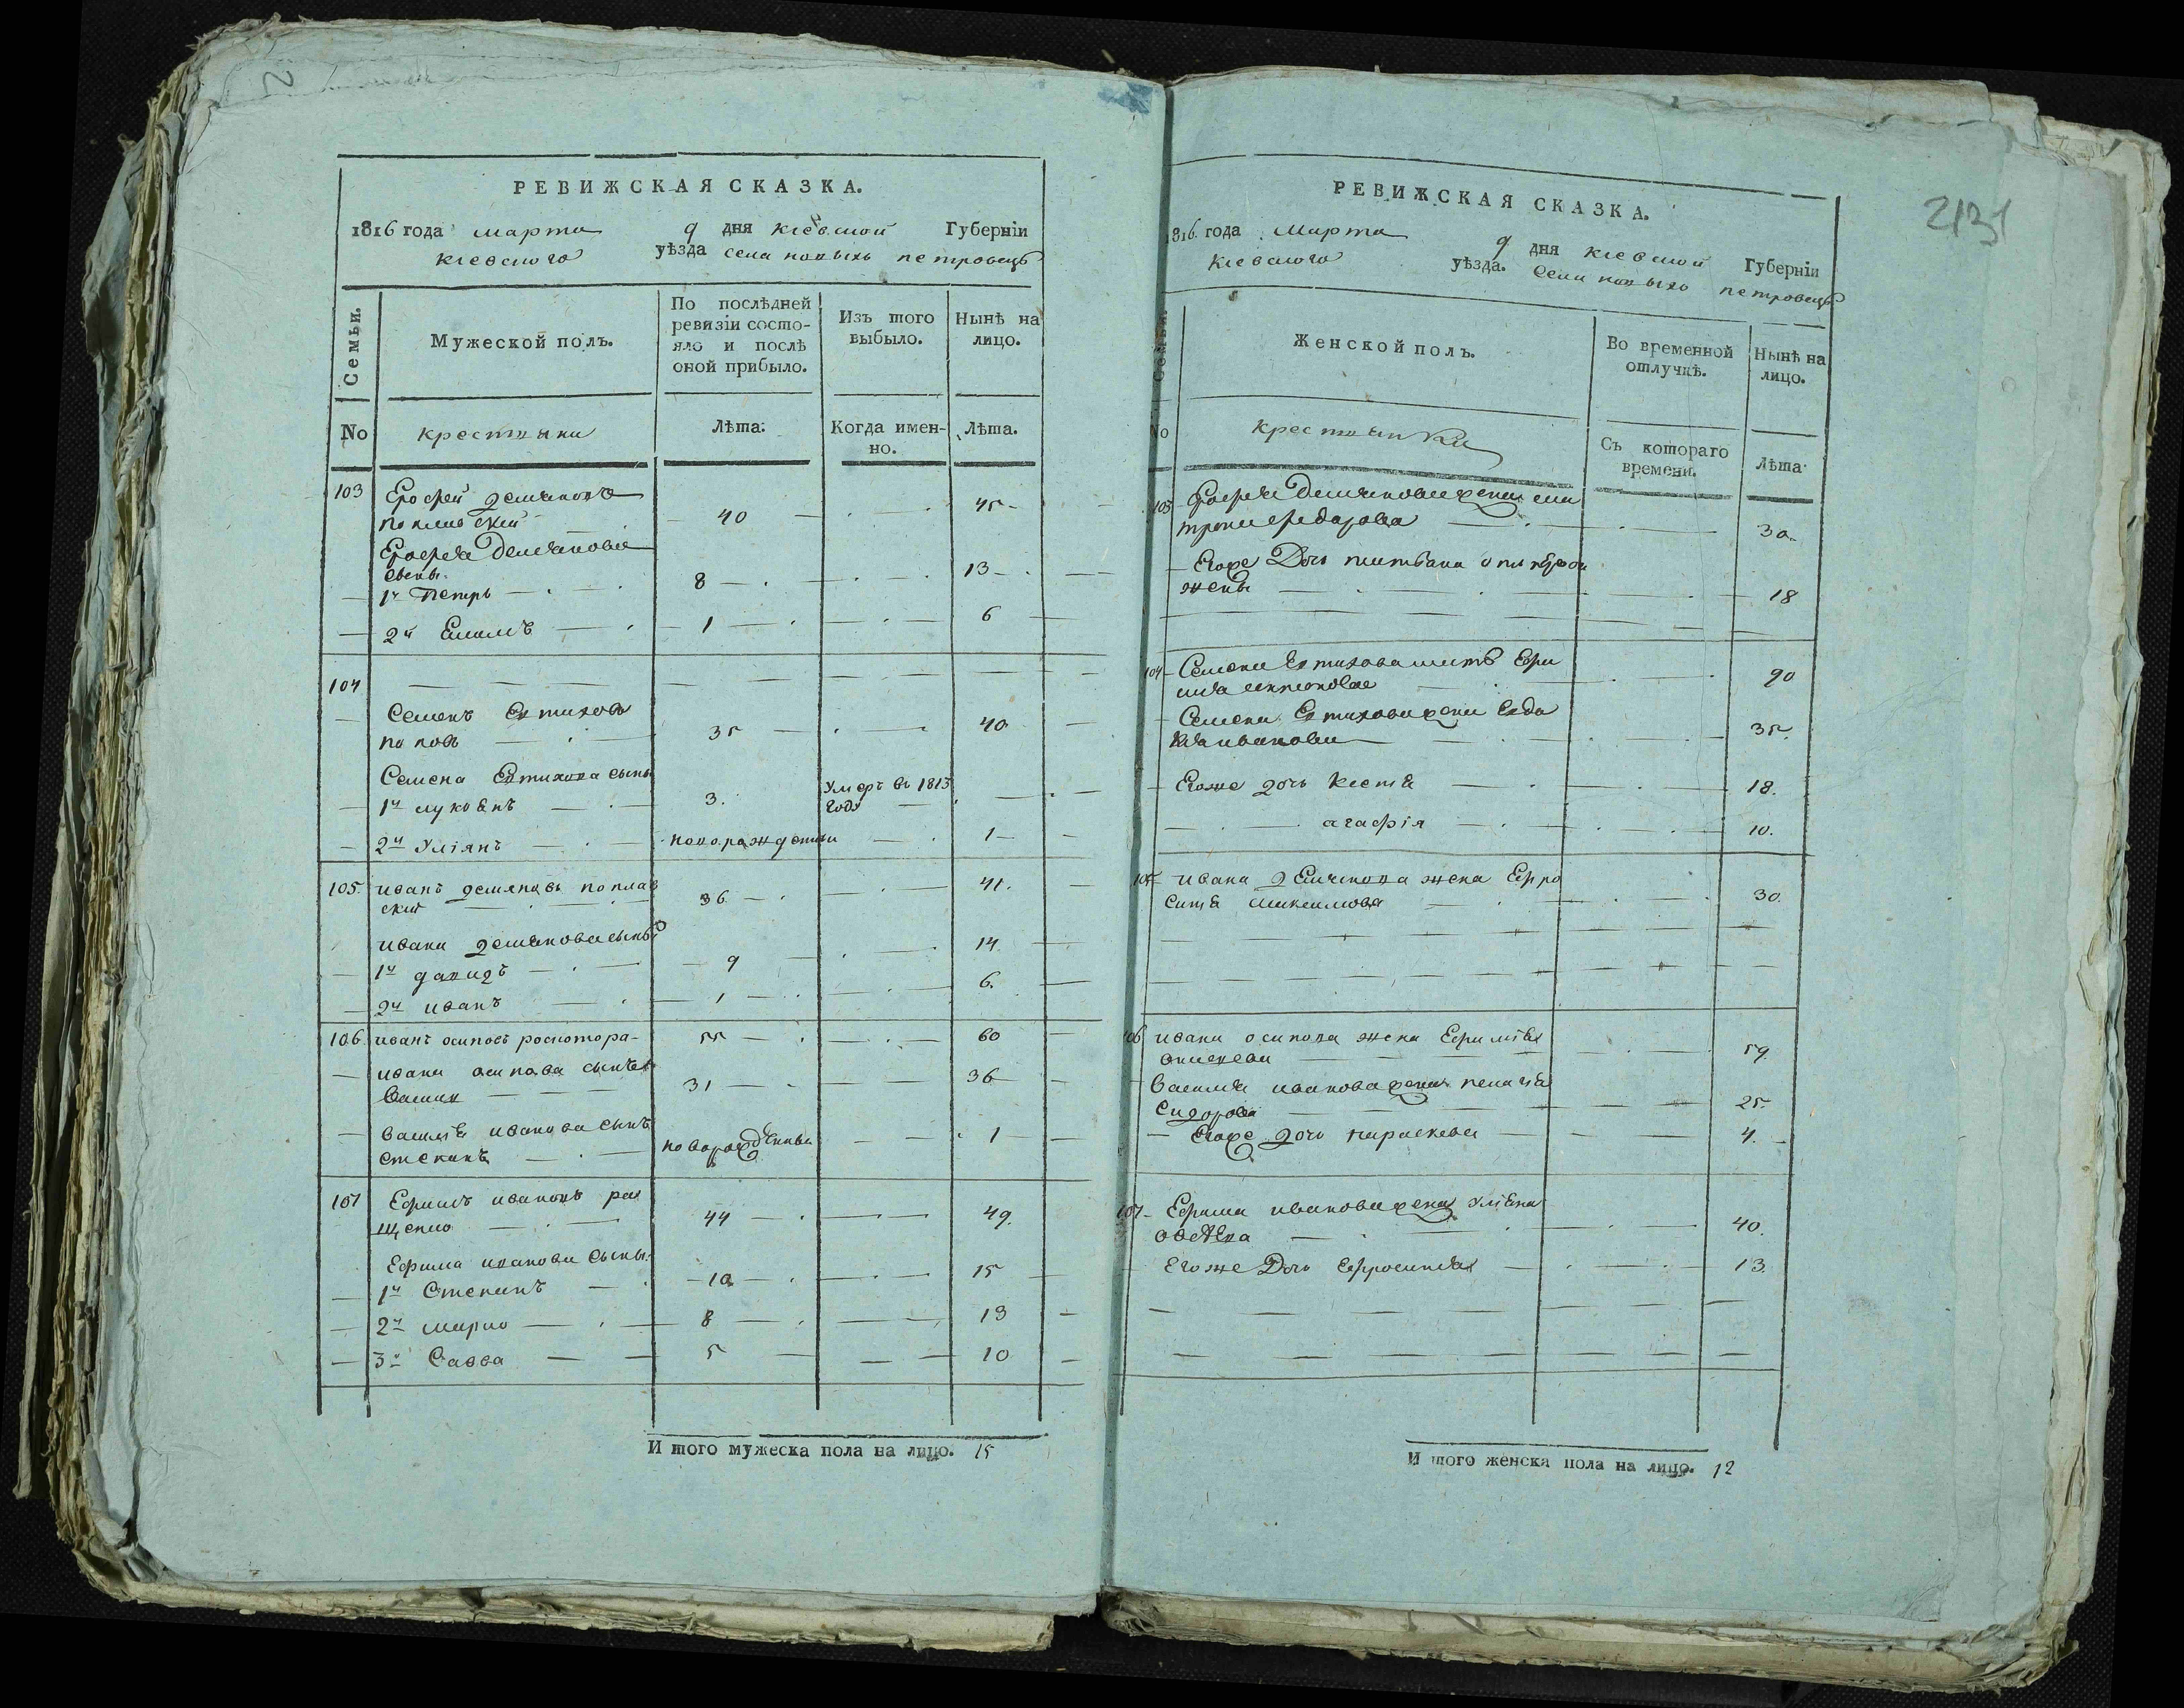 РЕВИЖСКАЯ СКАЗКА.
1816 года марта 9 дня киевской Губерніи
киевского уѣзда села новыхъ петровецъ
Семьи. Мужеской полъ. По послѣдней ревизіи состояло и послѣ оной прибыло. Изъ того выбыло. Нынѣ на лицо.
No крестьяни Лѣта. Когда именно. Лѣта.
103 Ерофей демьяновъ
поплавский 40 45
Ерофея Демьянова
сыны
1й Петръ 8 13
2й 1 6
104
Семенъ Евтиховъ
попов 35 40
Семена Евтихова сыны
1й лукьянъ 3. умеръ въ 1813 году
2й Улiянъ новорожденни 1
105. иванъ демяновъ поплав
ский 36 41.
ивана демьянова сыны
1й давидъ 9 14.
2й иванъ 1 6.
106. иванъ осиповъ 55 60
ивана осипова сынъ
Василий 31 36
Василiя иванова сынъ
степанъ новорожденны 1
107 Ефимъ ивановъ ра
щенко 44 49.
Ефима иванова сыны
1й Степанъ 10 15
2й марко 8 13
3й Савва 5 10
И того мужеска пола на лицо. 15
2131
РЕВИЖСКАЯ СКАЗКА.
1816. года Марта 9 дня киевской Губерніи
киевского уѣзда. Села новыхъ петровецъ
Семьи. Женской полъ. Во временной отлучкѣ. Нынѣ на лицо.
No крестьянки Съ котораго времени. Лѣта
103 Ерофея Демьянова жена 30.
Егоже Дочь от первой
жены 18
104 Семена Евтихова мать Ефи
мия 90
Семена Евтихова жена Евдо
кия иванова 35.
Егоже дочь 18.
агафiя 10.
105 ивана демьянова жена Ефро
синiя максимова 30.
106 ивана осипова жена Ефимiя
59.
Василiя иванова жена пелагiя
Сидорова 25.
Егоже дочь параскева 4.
107 Ефима иванова жена Улiяна
40.
Егоже Дочь Ефросинiя 13.
И того женска пола на лицо. 12